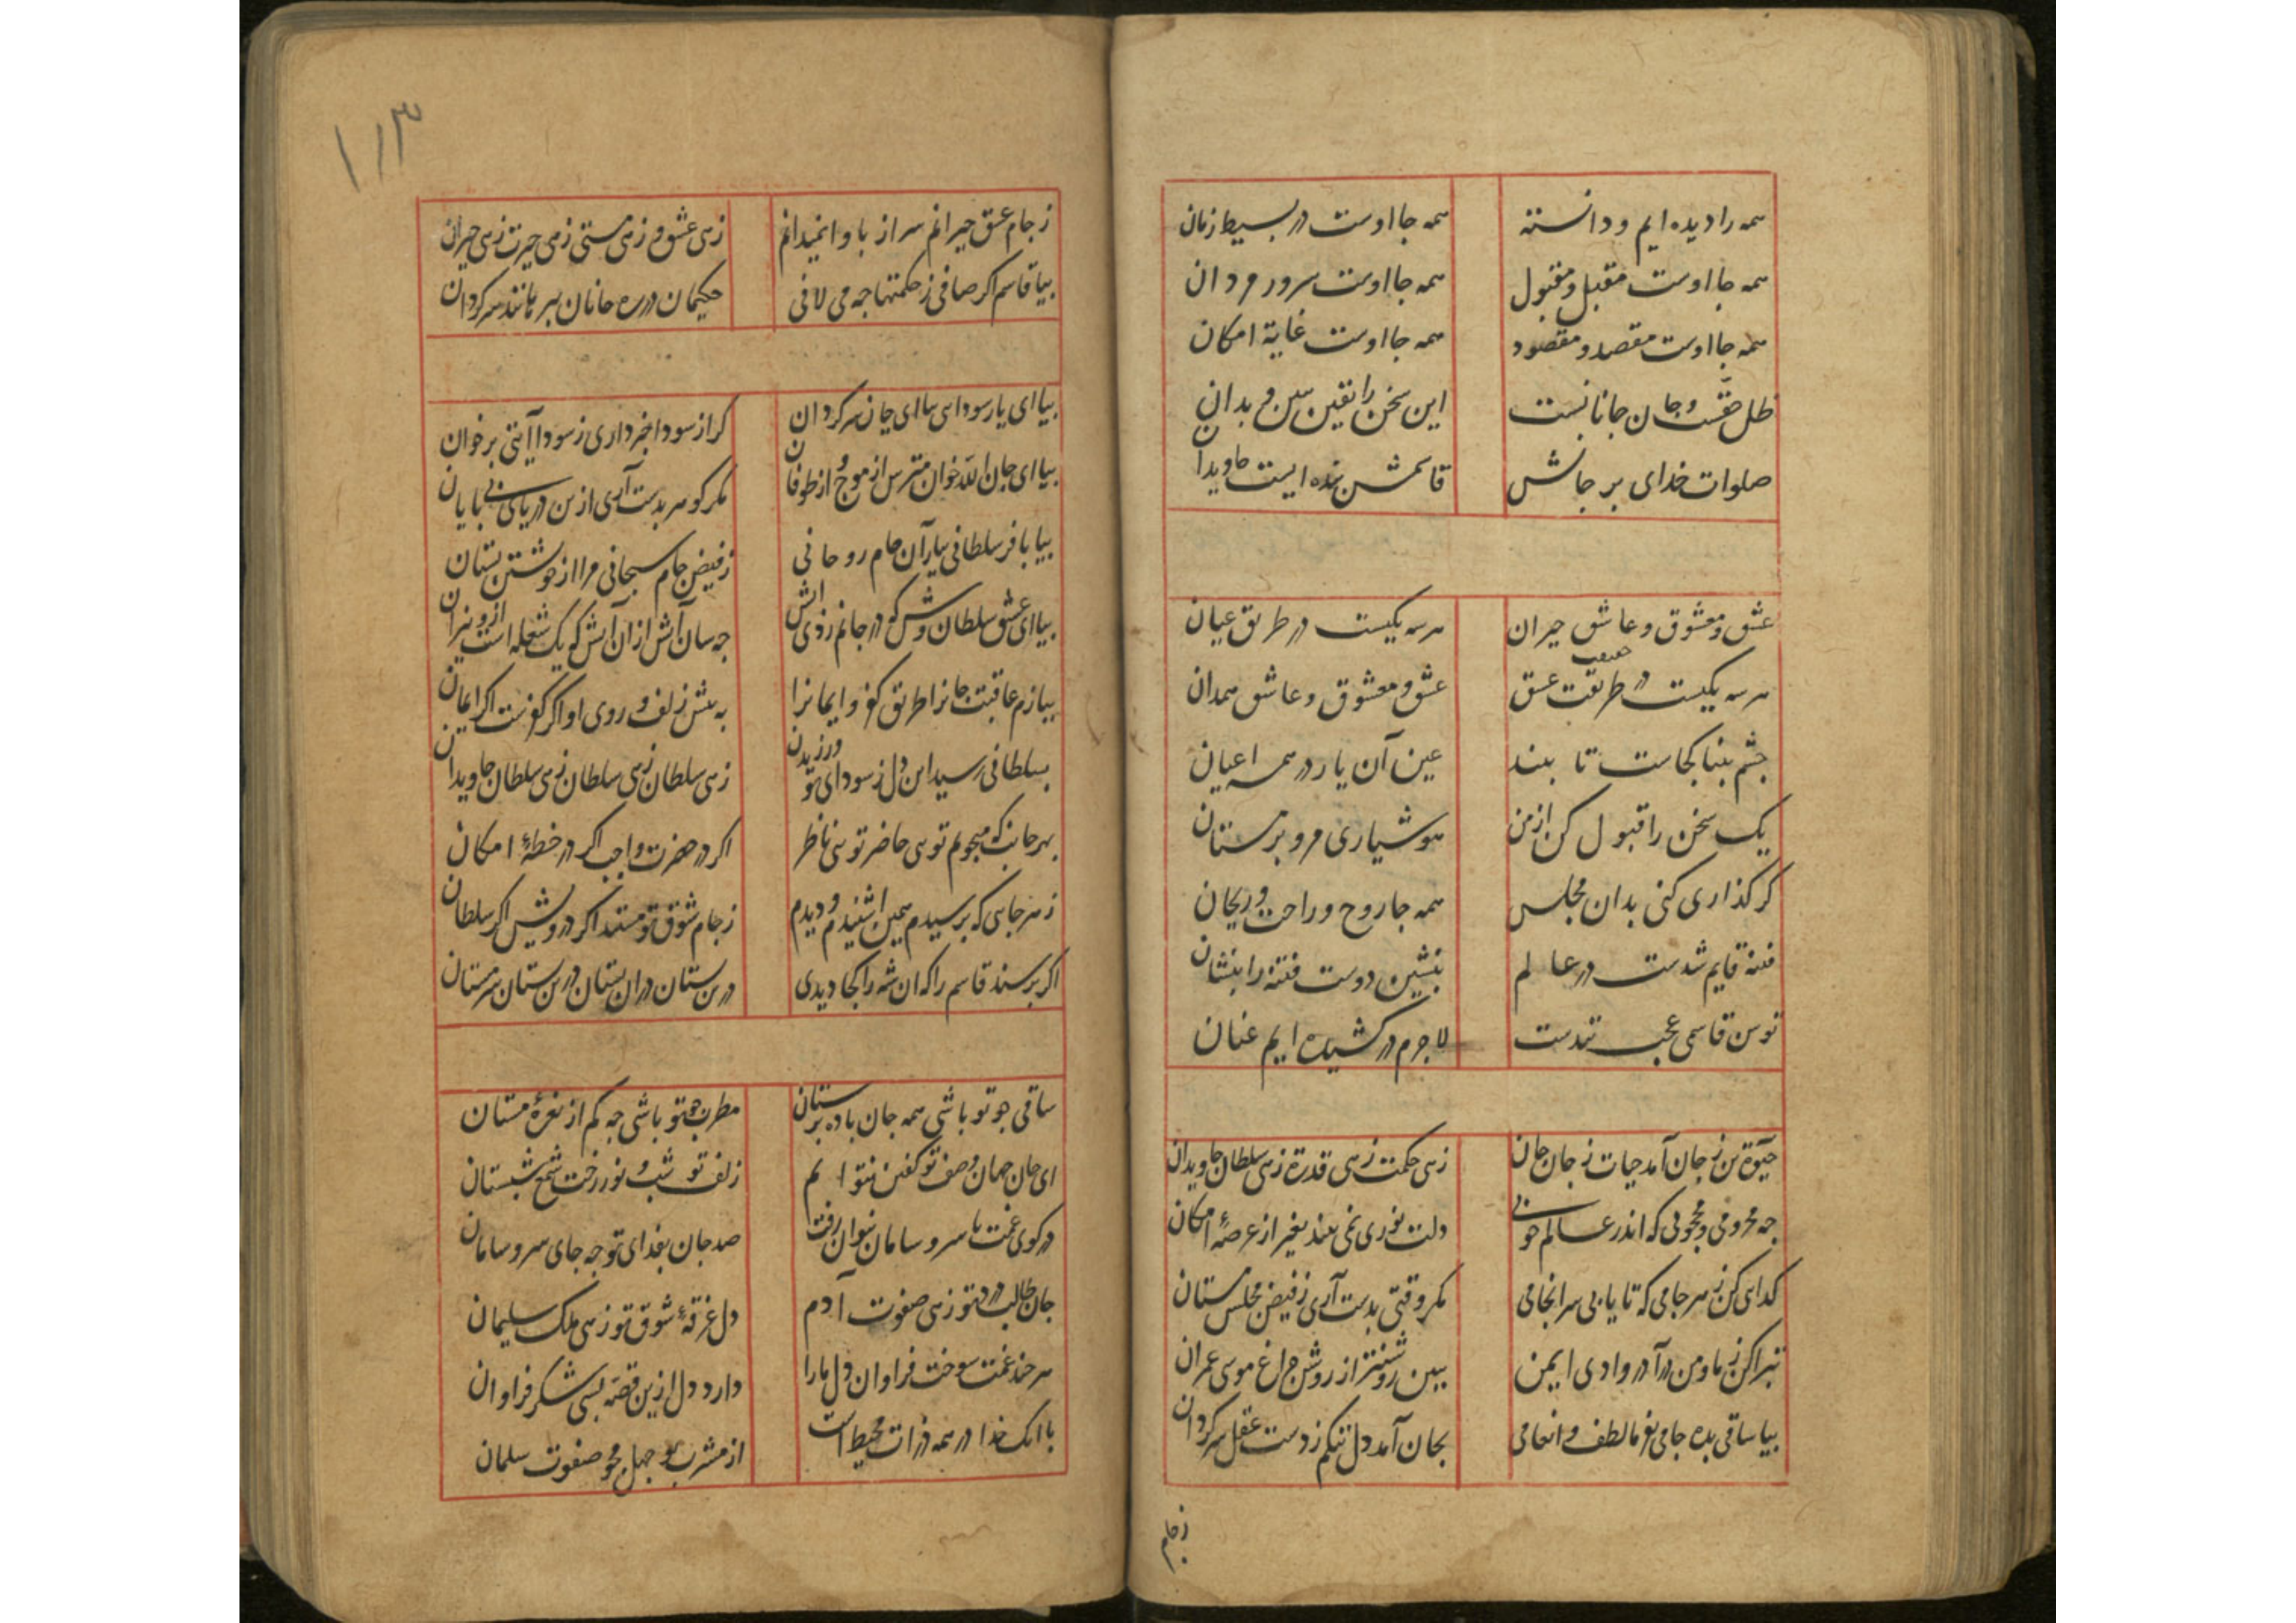 همه را دیده ایم و دانسته همه جا اوست در بسیط زمان
همه جا اوست مقبل و مقبول همه جا اوست سرور مردان
همه جا اوست مقصد و مقصود همه جا اوست غایة امکان
ظل حقست و جان جانانست این سخن را یقین ببین و بدان
صلوات خدای بر جانش قاسمش بنده ایست جاویدان
عشق و معشوق و عاشق حیران هرسه یکیست در طریق عیان
هرسه یکیست در طریقت عشق عشق و معشوق و عاشق همدان
چشم بینا کجاست تا بیند عین آن یار در همه اعیان
یک سخن را قبول کن از من هوشیاری مرو بر مستان
کر کذاری کنی بدان مجلس همه جا روح و راحت و ریحان
فتنه قایم شدست در عالم بنشین دوست فتنه را بنشان
توسن قاسمی عجب تندست لاجرم در کشیده ایم عنان
حیوة تن ز جان آمد حیات ز جان جان زهی حکمت زهی قدرة زهی سلطان جاویدان
چه محرومی و محجوبی که اندر عالم خوبی دلت نوری نمی بیند بغیر از عرصهٔ امکان
کدای کن ز هر جامی که تا یابی سرانجامی مکر وقتی بدست آری ز فیض مجلس مستان
تبرا کن ز ما و من درآ در وادی ایمن ببین روشنتر از روشن چراغ موسی عمران
بیا ساقی بده جامی بفرما لطف و انعامی بجان آمد دل تنکم ز دست عقل سرکردان
ز جام
۱۱۳
ز جام عشق حیرانم سر از پا وا نمیدانم زهی عشق و زهی مستی زهی حیرت زهی حیران
بیا قاسم اکر صافی ز حکمتها چه می لافی حکیمان در ره جانان بسر مانند سرکردان
بیا ای یار سودایی بیا ای جان سرکردان کر از سودا خبر داری ز سودا آیتی برخوان
بیا ای جان الله خوان مترس از موج و از طوفان مکر کوهر بدست آری ازین دریای بی پایان
بیا با فر سلطانی بیار آن جام روحانی ز فیض جام سبحانی مرا از خویشتن بستان
بیا ای عشق سلطان وش که در جانم زدی آتش چه سان آتش از آن آتش که یک شعله است ازو نیران
ببازم عاقبت جانرا طریق کفر و ایمانرا به عشق زلف و روی او اکر کفرست اکر ایمان
بسلطانی رسید این دل ز سودای تو ورزیدن زهی سلطان زهی سلطان زهی سلطان جاویدان
بهر جانب که میجویم تویی حاضر تویی ناظر اکر در حضرت واجب اکر در خطهٔ امکان
ز هر جایی که پرسیدم همین اشنیدم و دیدم ز جام شوق تو مستند اکر درویش اکر سلطان
اکر پرسند قاسم را که ان شه را کجا دیدی درین بستان دران بستان درین بستان سرمستان
ساقی چو تو باشی همه جان باده پرستان مطرب چو تو باشی چه کم از نعرهٔ مستان
ای جان جهان وصف تو کفتن نتوانم زلف تو شب و نور رخت شمع شبستان
در کوی غمت با سر و سامان نتوان رفت صد جان بفدای تو چه جای سر و سامان
جان طالب درد تو زهی صفوت آدم دل غرقهٔ شوق تو زهی ملک سلیمان
هر چند غمت سوخت فراوان دل ما را دارد دل ازین قصه بسی شکر فراوان
با انک خدا در همه ذرات محیط است از مشرب بو جهل مجو صفوت سلمان